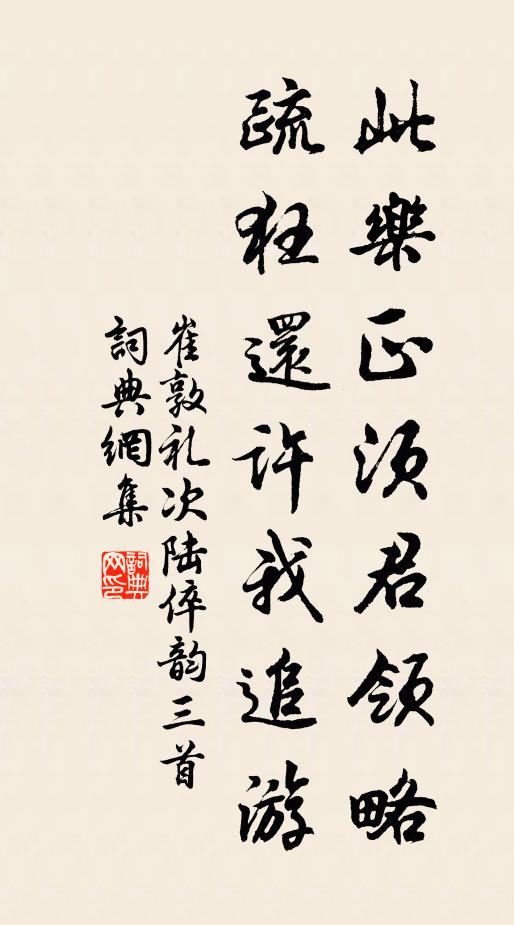 此樂正须君領略
疏狂還許我追游
崔敦礼次陆倅韵三首
詞典網集
詞典網印